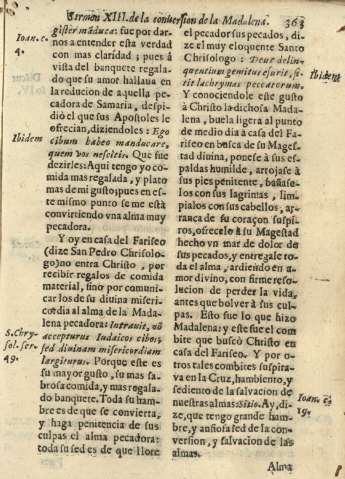 Sermon XIII. de la conuersion de la Madalena. 363
Ioan. c. 4.
gister māduca: fue por dar-
nos a entender esta verdad
con mas claridad; pues à
vista del banquete regala-
do que su amor hallaua en
la reducion de aquella pe-
cadora de Samaria, despi-
diò el que sus Apostoles le
ofrecian, diziendoles: Ego
Ibidem
cibum habeo manducare,
quem vos nescitis. Que fue
dezirles: Aqui tengo yo co-
mida mas regalada, y plato
mas de mi gusto; pues en es-
te mismo punto se me està
convirtiendo vna alma muy
pecadora.
Y oy en casa del Fariseo
(dize San Pedro Chrisolo-
go) no entra Christo, por
recibir regalos de comida
material, sino por comuni-
car los de su diuina miseri-
cordia al alma de la Mada-
lena pecadora: Intrauit, nō
S. Chry-
sol. ser.
49.
accepturus Iudaicos cibos,
sed diuinam misericordiam
largiturus. Porque este es
su mayor gusto, su mas sa-
brosa comida, y mas regala-
do banquete. Toda su ham-
bre es de que se convierta,
y haga penitencia de sus
culpas el alma pecadora:
toda su sed es de que llore
el pecador sus pecados, di-
ze el muy eloquente Santo
Chrisologo: Deus delin-
quentium gemitus esurit, si-
Ibidem
tit lachrymas peccatorum.
Y conociendole este gusto
à Christo la dichosa Mada-
lena, buela ligera al punto
de medio dia à casa del Fa-
riseo en busca de su Mages-
tad diuina, ponese à sus es-
paldas humilde, arrojase à
sus pies penitente, bañase-
los con sus lagrimas, lim-
pialos con sus cabellos, ar-
ranca de su coraçon suspi-
ros, ofrecelo à su Magestad
hecho vn mar de dolor de
sus pecados, y entregale to-
da el alma, ardiendo en a-
mor divino, con firme reso-
lucion de perder la vida,
antes que bolver à sus cul-
pas. Esto fue lo que hizo
Madalena: y este fue el com
bite que buscò Christo en
casa del Fariseo. Y por o-
tros tales combites suspira-
va en la Cruz, hambiento, y
sediento de la salvacion de
nuestras almas: Sitio. Ay, di-
Ioan. c.
19.
ze, que tengo grande ham-
bre, y ansiosa sed de la con-
version, y salvacion de las
almas.
Alma